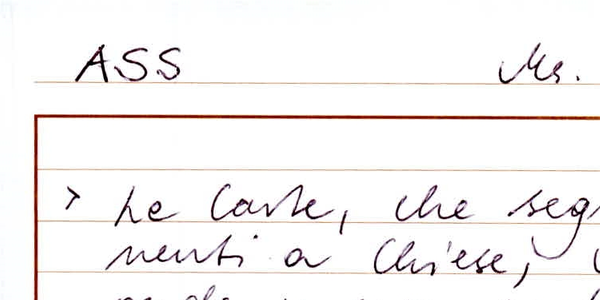 ASS Ms.
> Le Carte, che seg
nenti a Chiese,